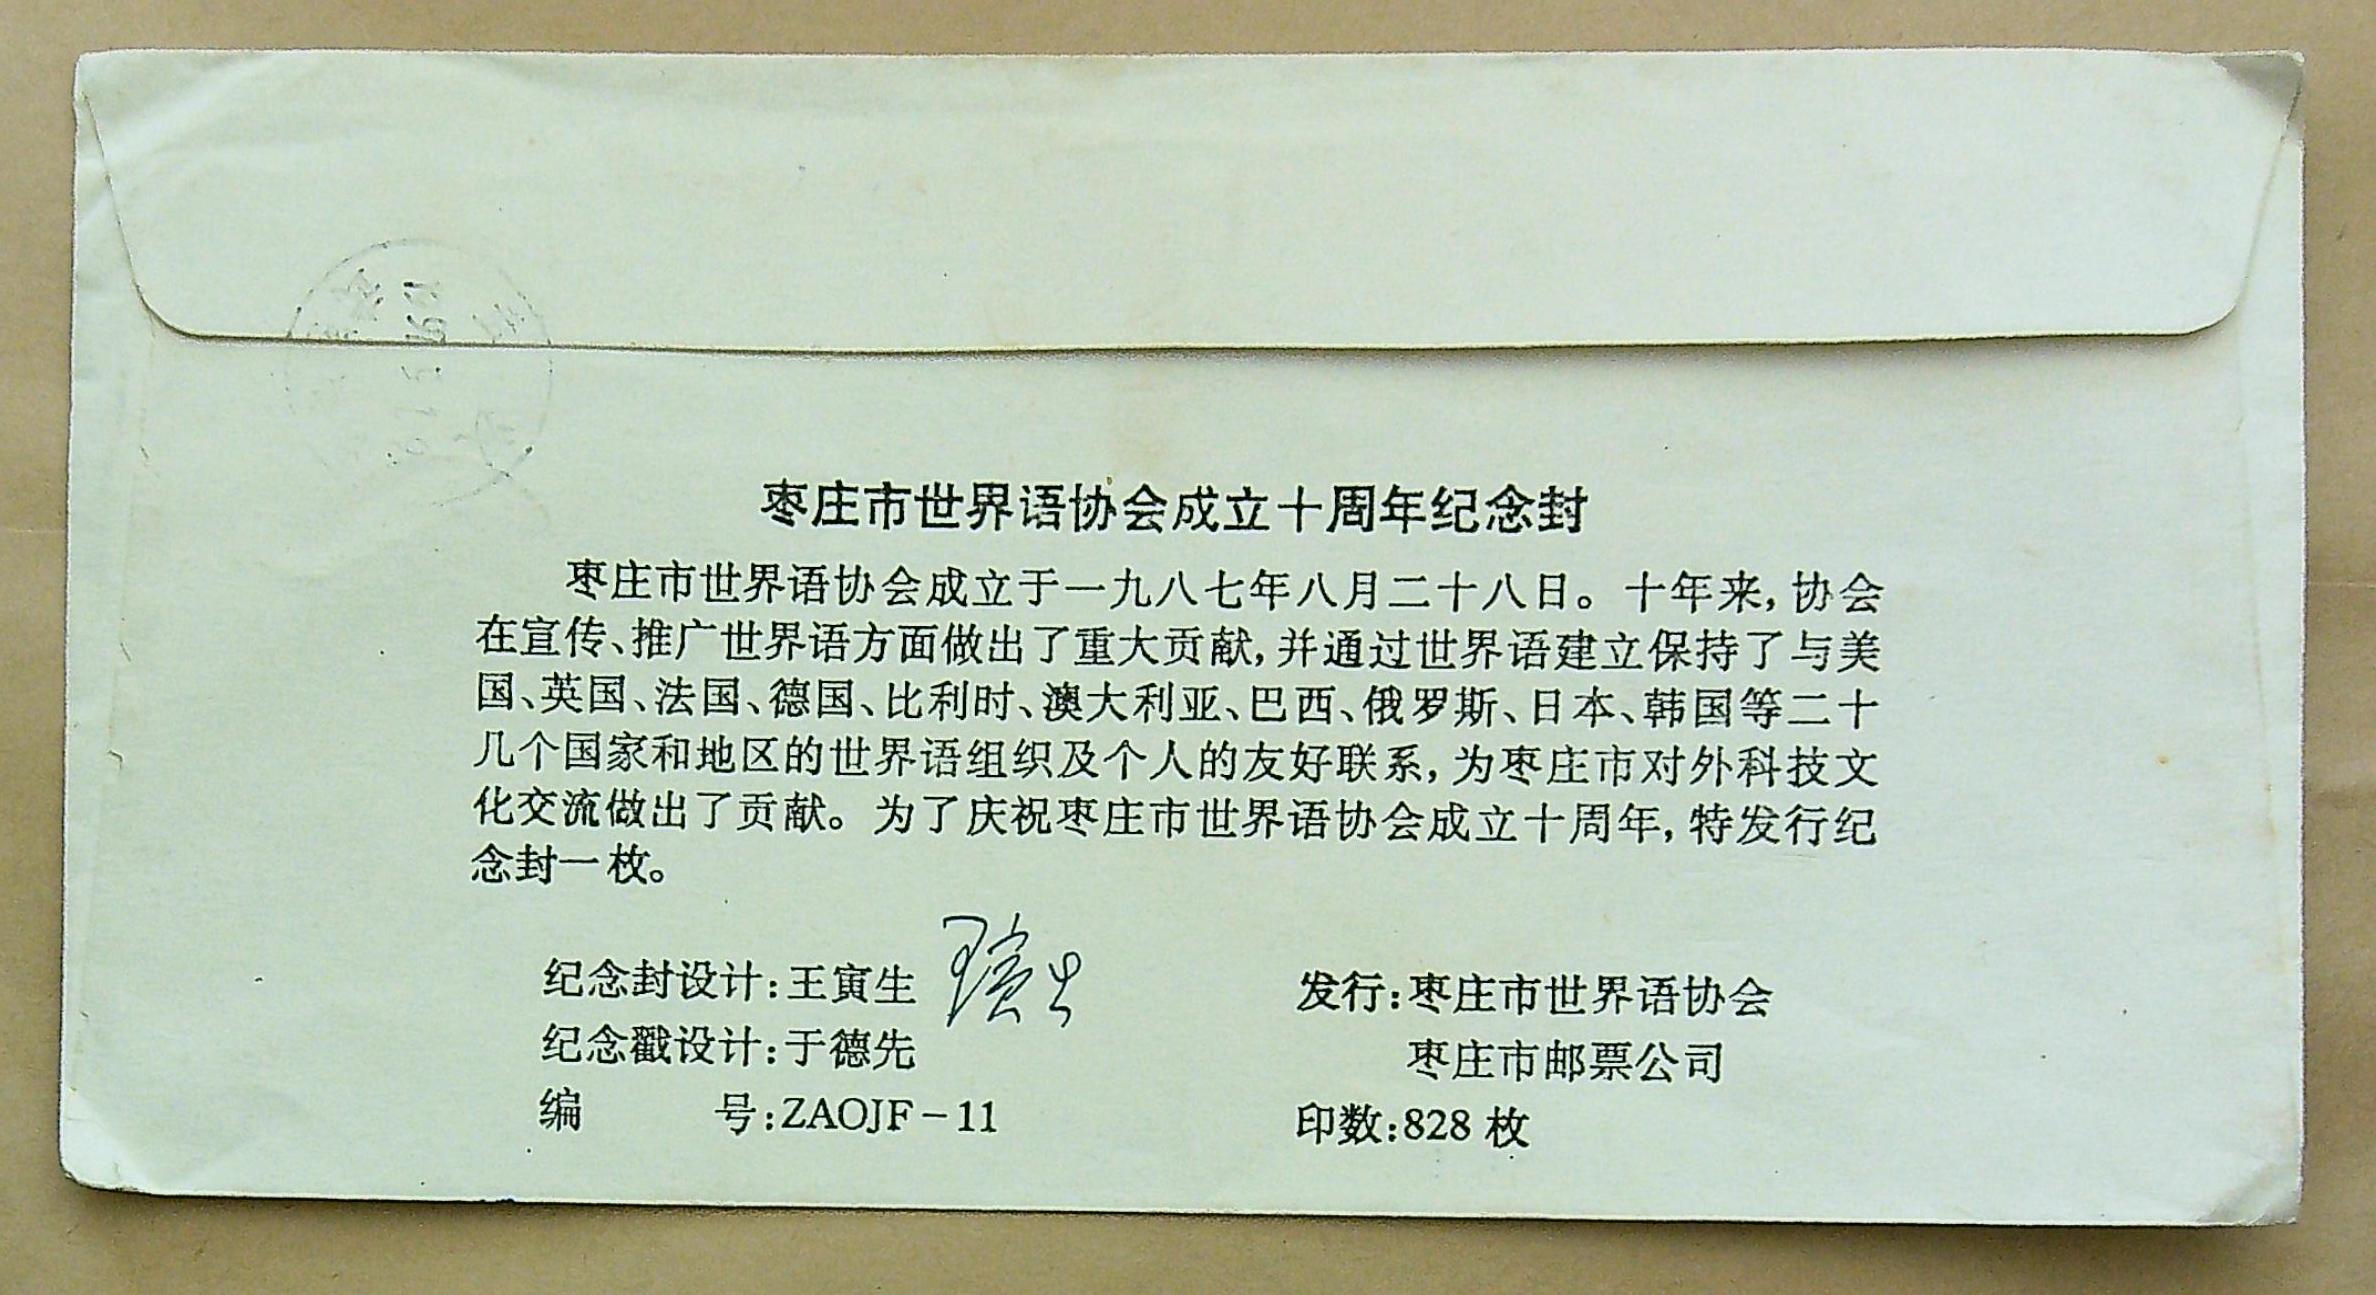 枣庄市世界语协会成立十周年纪念封
枣庄市世界语协会成立于一九八七年八月二十八日。十年来,协会
在宣传、推广世界语方面做出了重大贡献,并通过世界语建立保持了与美
国、英国、法国、德国、比利时、澳大利亚、巴西、俄罗斯、日本、韩国等二十
几个国家和地区的世界语组织及个人的友好联系,为枣庄市对外科技文
化交流做出了贡献。为了庆祝枣庄市世界语协会成立十周年,特发行纪
念封一枚。
纪念封设计:王寅生 王寅生
纪念戳设计:于德先
编 号:ZAOJF-11
发行:枣庄市世界语协会
枣庄市邮票公司
印数:828 枚